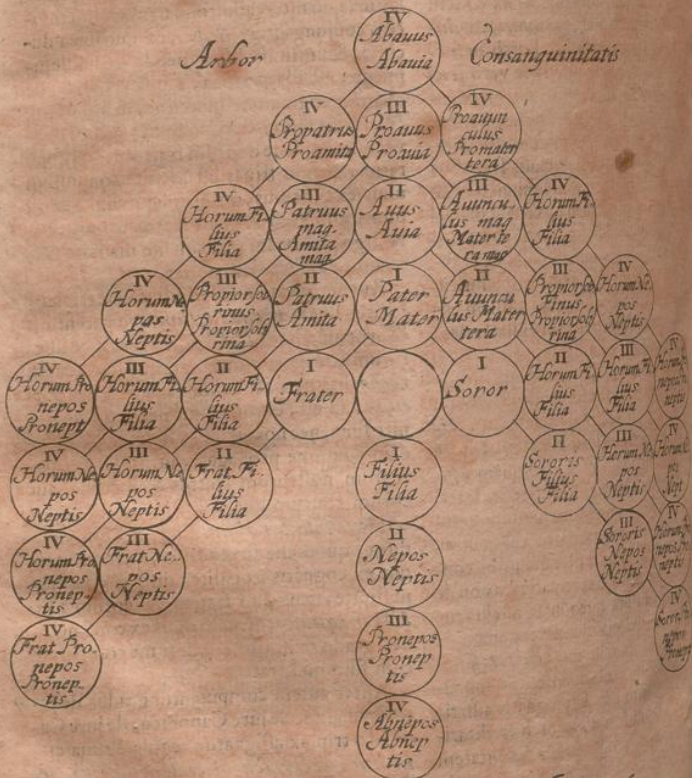 Arbor
Consanguinitatis
IV
Abavus
Abavia
IV
Propatrus
Proamita
III
Proavus
Proavia
IV
Proavun
culus
Promater
tera
IV
Horum Fi
lius
Filia
III
Patruus
mag.
Amita
mag
II
Avus
Avia
III
Avuncu
lus mag
Mater te
ra mag
IV
Horum Fi
lius
Filia
IV
Horum Ne
pos
Neptis
III
Propior sob
rinus
Propior sob
rina
II
Patruus
Amita
I
Pater
Mater
II
Avuncu
lus Mater
tera
III
Propior
Propior sob
rina
IV
Horum Ne
pos
Neptis
IV
Horum Pro
nepos
Pronept
III
Horum Fi
lius
Filia
II
Horum Fi
lius
Filia
I
Frater
I
Soror
II
Horum Fi
lius
Filia
III
Horum Fi
lius
Filia
IV
IV
Horum Ne
pos
Neptis
III
Horum Ne
pos
Neptis
II
Frat. Fi
lius
Filia
I
Filius
Filia
II
Sororis
Filius
Filia
III
Horum Ne
pos
Neptis
IV
pos
Nept
IV
Horum Pro
nepos
Pronep
tis
III
Frat Ne.
pos
Neptis
II
Nepos
Neptis
III
Sororis
Nepos
Neptis
IV
IV
Frat Pro.
nepos
Pronep
tis
III
Pronepos
Pronep
tis
IV
IV
Abnepos
Abnep
tis